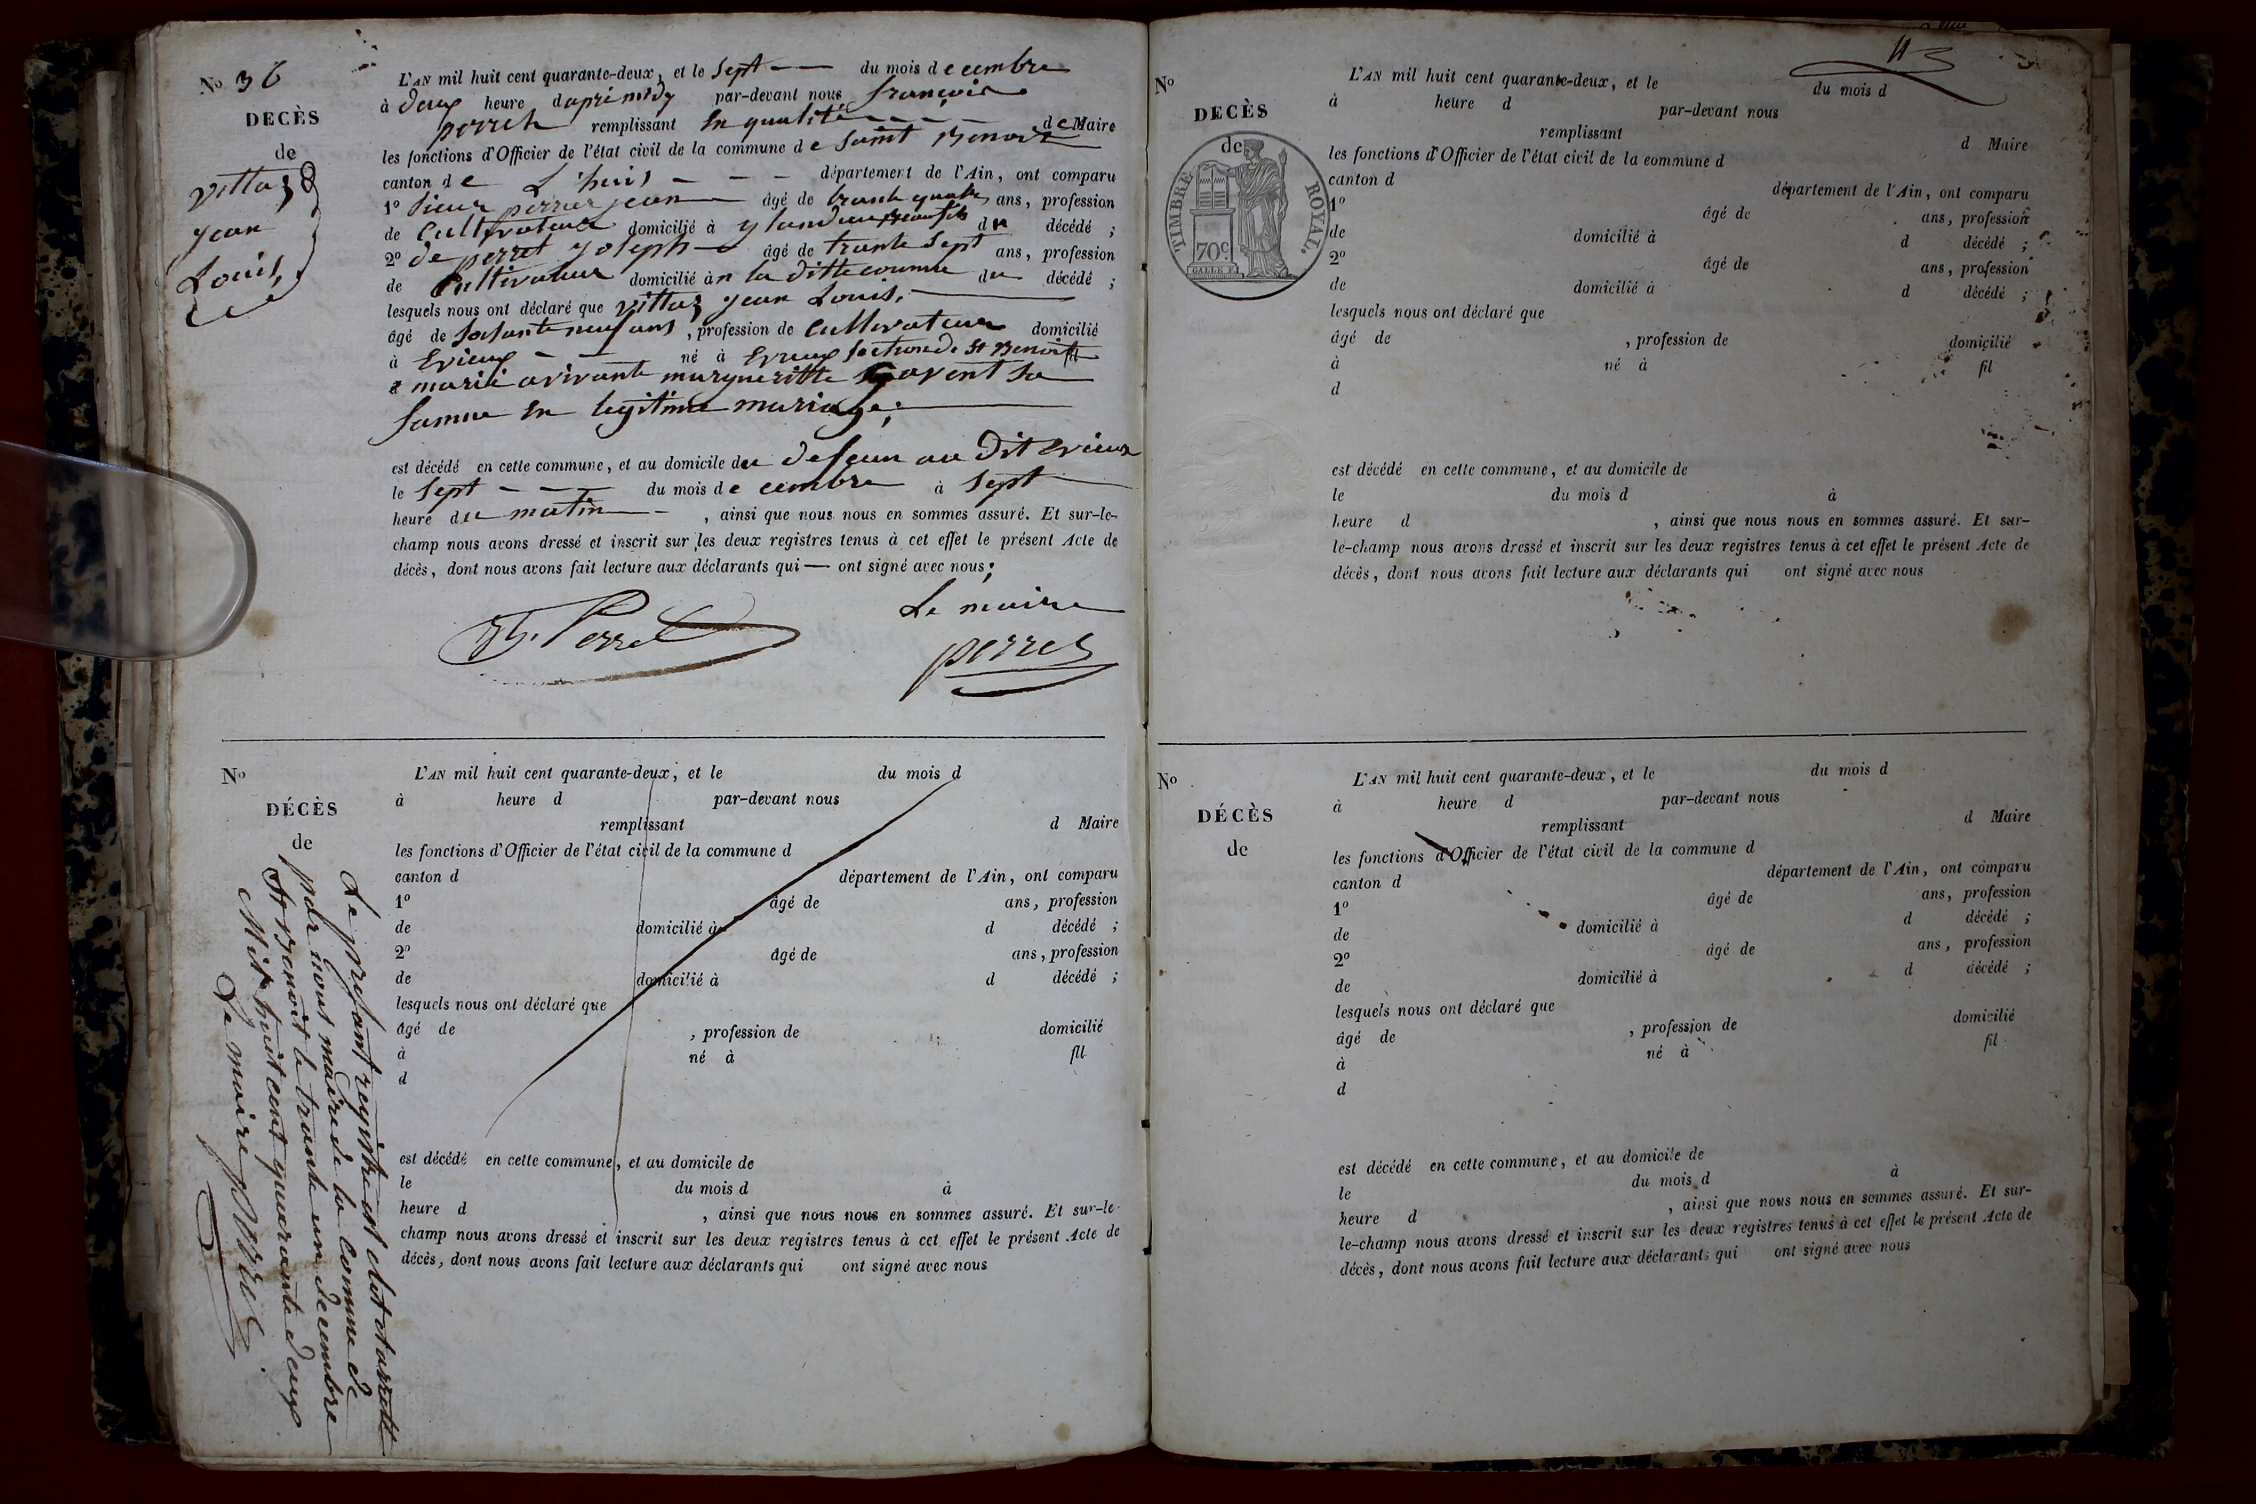 No 36
DECÈS
de
vittoz
jean
Louis,
L'AN mil huit cent quarante-deux, et le Sept du mois decembre
à deux heure daprémidy par-devant nous francois
perret remplissant En qualité de Maire
les fonctions d'Officier de l'état civil de la commune de Saint Benoit
canton de L'huis département de l'Ain, ont comparu
1o Sieur perrier jean âgé de trante quatre ans, profession
de Cultivateur domicilié à du décédé ;
2o de perret joseph âgé de trante Sept ans, profession
de Cultivateur domicilié àn la ditte coumune du décédé ;
lesquels nous ont déclaré que vittoz jean Louis,
âgé de Soisante neuf ans, profession de Cultivateur domicilié
à Evieux né à Evieux Section de St Benoit fil
marié avivante margueritte Savent Sa
famme En legitime mariage ;
est décédé en cette commune, et au domicile du defeun au Dit Evieux
le Sept du mois decembre à Sept
heure du matin , ainsi que nous nous en sommes assuré. Et sur-le-
champ nous avons dressé et inscrit sur les deux registres tenus à cet effet le présent Acte de
décès, dont nous avons fait lecture aux déclarants qui — ont signé avec nous ;
Le maire
Perret
perret
No
DÉCÈS
de
L'AN mil huit cent quarante-deux, et le du mois d
à heure d par-devant nous
remplissant d Maire
les fonctions d'Officier de l'état civil de la commune d
canton d département de l'Ain, ont comparu
1o âgé de ans, profession
de domicilié à d décédé ;
2o âgé de ans, profession
de domicilié à d décédé ;
lesquels nous ont déclaré que
âgé de , profession de domicilié
à né à fil
d
est décédé en cette commune, et au domicile de
le du mois d à
heure d , ainsi que nous nous en sommes assuré. Et sur-le-
champ nous avons dressé et inscrit sur les deux registres tenus à cet effet le présent Acte de
décès, dont nous avons fait lecture aux déclarants qui ont signé avec nous
Le présant registre est clot et arretté
par nous maire de la comune de
St Benoit le trante un decembre
Mil huit cent quarante deux
Le maire perret
No
DECÈS
de
TIMBRE ROYAL.
70c
L'AN mil huit cent quarante-deux, et le du mois d
à heure d par-devant nous
remplissant d Maire
les fonctions d'Officier de l'état civil de la commune d
canton d département de l'Ain, ont comparu
1o âgé de ans, profession
de domicilié à d décédé ;
2o âgé de ans, profession
de domicilié à d décédé ;
lesquels nous ont déclaré que
âgé de , profession de domicilié
à né à fil
d
est décédé en cette commune, et au domicile de
le du mois d à
heure d , ainsi que nous nous en sommes assuré. Et sur-
le-champ nous avons dressé et inscrit sur les deux registres tenus à cet effet le présent Acte de
décès, dont nous avons fait lecture aux déclarants qui ont signé avec nous
No
DÉCÈS
de
L'AN mil huit cent quarante-deux, et le du mois d
à heure d par-devant nous
remplissant d Maire
les fonctions d'Officier de l'état civil de la commune d
canton d département de l'Ain, ont comparu
1o âgé de ans, profession
de domicilié à d décédé ;
2o âgé de ans, profession
de domicilié à d décédé ;
lesquels nous ont déclaré que
âgé de , profession de domicilié
à né à fil
d
est décédé en cette commune, et au domicile de
le du mois d à
heure d , ainsi que nous nous en sommes assuré. Et sur-
le-champ nous avons dressé et inscrit sur les deux registres tenus à cet effet le présent Acte de
décès, dont nous avons fait lecture aux déclarants qui ont signé avec nous